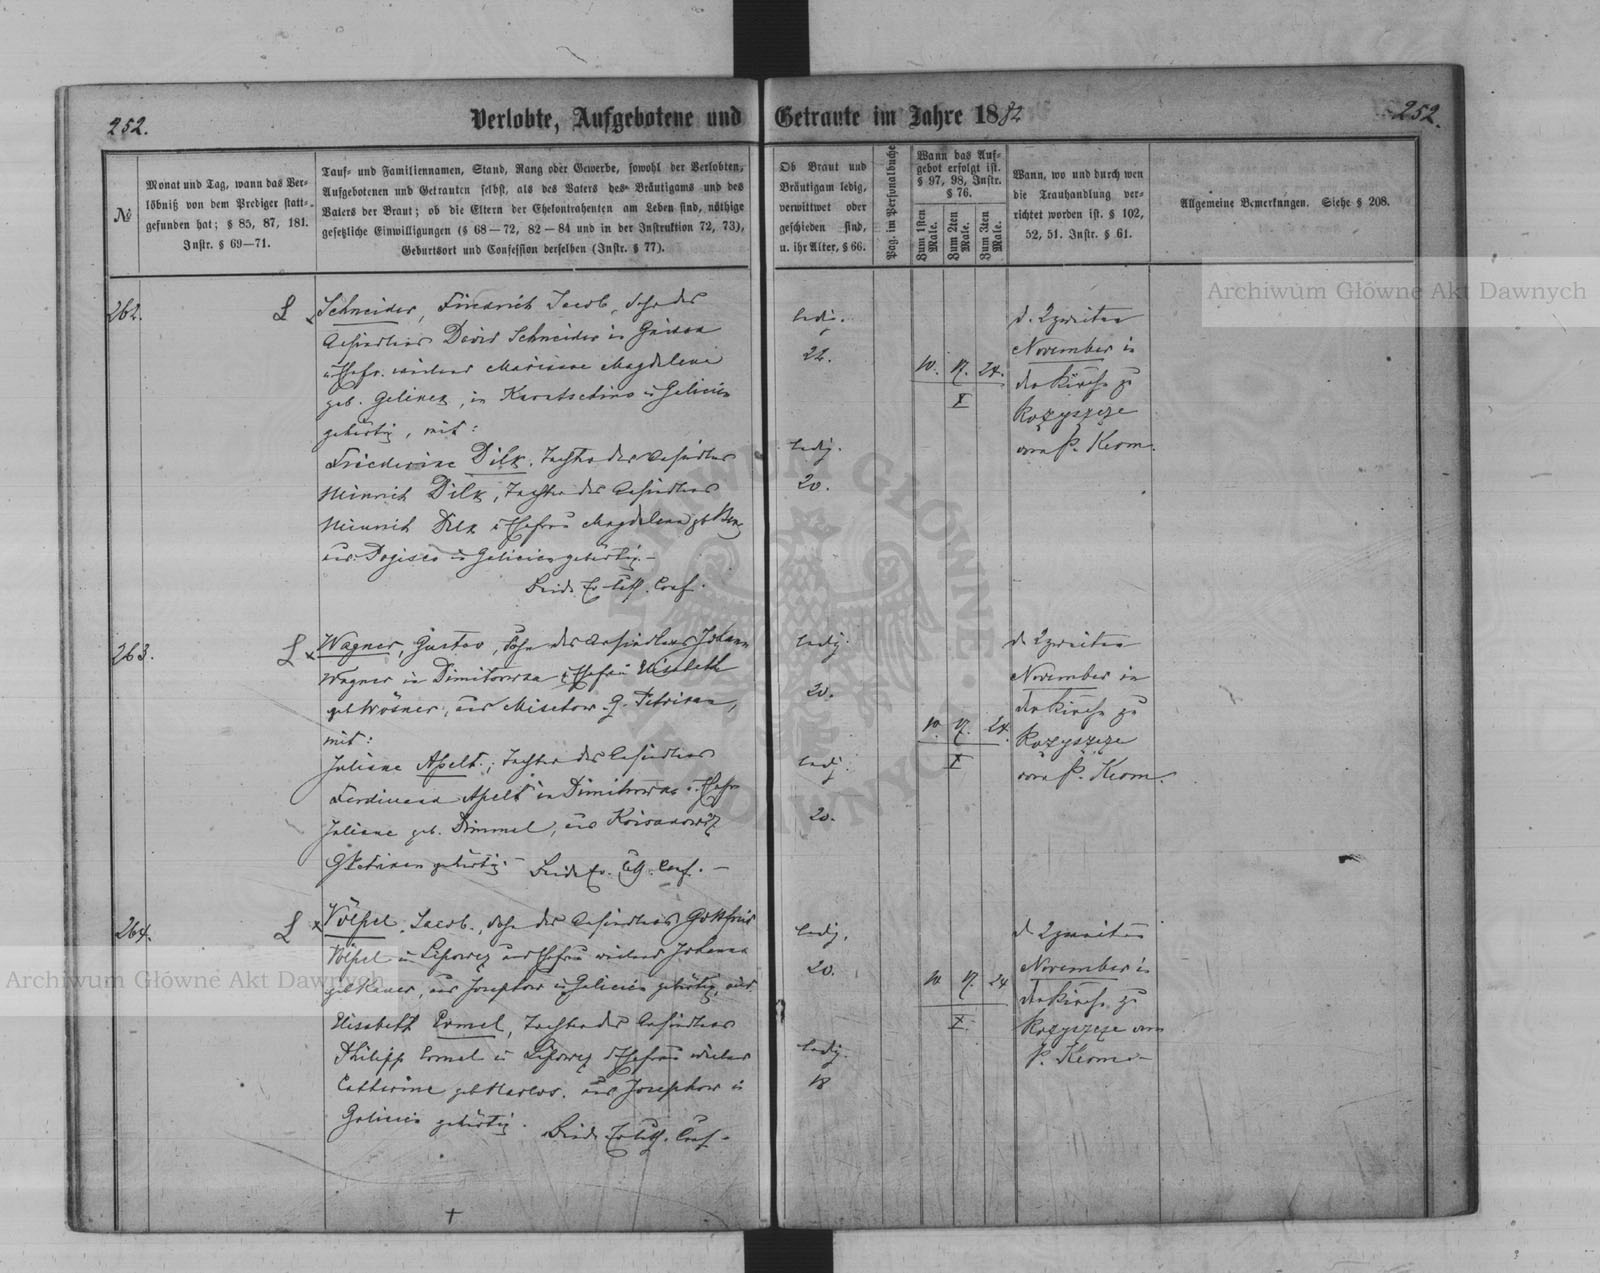 252.
Verlobte, Aufgebotene und Getraute im Jahre 1882
252.
№
Monat und Tag, wann das Ver-
löbniß von dem Prediger statt-
gefunden hat; § 85, 87, 181.
Instr. § 69—71.
Tauf- und Familiennamen, Stand, Rang oder Gewerbe, sowohl der Verlobten,
Aufgebotenen und Getrauten selbst, als des Vaters des Bräutigams und des
Vaters der Braut; ob die Eltern der Ehekontrahenten am Leben sind, nöthige
gesetzliche Einwilligungen (§ 68—72, 82—84 und in der Instruktion 72, 73),
Geburtsort und Confession derselben (Instr. § 77).
Ob Braut und
Bräutigam ledig,
verwittwet oder
geschieden sind,
u. ihr Alter, § 66.
Pag. im Personalbuche
Wann das Auf-
gebot erfolgt ist.
§ 97, 98, Instr.
§ 76.
Zum 1sten Male.
Zum 2ten Male.
Zum 3ten Male.
Wann, wo und durch wen
die Trauhandlung ver-
richtet worden ist. § 102,
52, 51. Instr. § 61.
Allgemeine Bemerkungen. Siehe § 208.
262.
L
Schneider, Friedrich Jacob, Sohn des
Ansiedlers David Schneider in
u. Ehefr. weiland Magdalena
geb. in Galicien
gebürtig, mit:
Friederike Dilk, Tochter des Ansiedlers
Heinrich Dilk, Tochter des Ansiedlers
Heinrich Dilk u Ehefrau Magdalena geb
aus in Galicien gebürtig.—
Beide Ev. Luth. Conf.
ledig.
22.
ledig.
20.
10. 17. 24.
X
d. 2 zweiten
November in
der Kirche zu
Rozyszcze
vom P. Kerm.
263.
L
Wagner, Gustav, Sohn des Ansiedlers Johann
Wagner in Dimitrowka u Ehefrau Elisabeth
geb Wösner, aus G. Petrikau,
mit:
Juliane Apelt, Tochter des Ansiedlers
Ferdinand Apelt in Dimitrowka u. Ehefr
Juliane geb. Dimmel, aus
G Petrikau gebürtig.— Beide Ev. Luth. Conf.—
ledig.
20.
ledig.
20.
10. 17. 24.
X
d. 2 zweiten
November in
der Kirche zu
Rozyszcze
vom P. Kerm.
264.
L
Völpel, Jacob, Sohn des Ansiedlers Gottfried
Völpel in Lipowez und Ehefrau weiland Johanna
geb aus Josephow in Galicien gebürtig, mit
Elisabeth Ermel, Tochter des Ansiedlers
Philipp Ermel in Lipowez u Ehefrau weiland
Catherine geb aus Josephow in
Galicien gebürtig.
Beide Ev Luth. Conf.
ledig.
20.
ledig.
18
10. 17. 24
X.
d 2 zweiten
November in
der Kirche zu
Rozyszcze vom
P. Kerm.—
Archiwum Główne Akt Dawnych
Archiwum Główne Akt Dawnych
ARCHIWUM GŁÓWNE AKT DAWNYCH